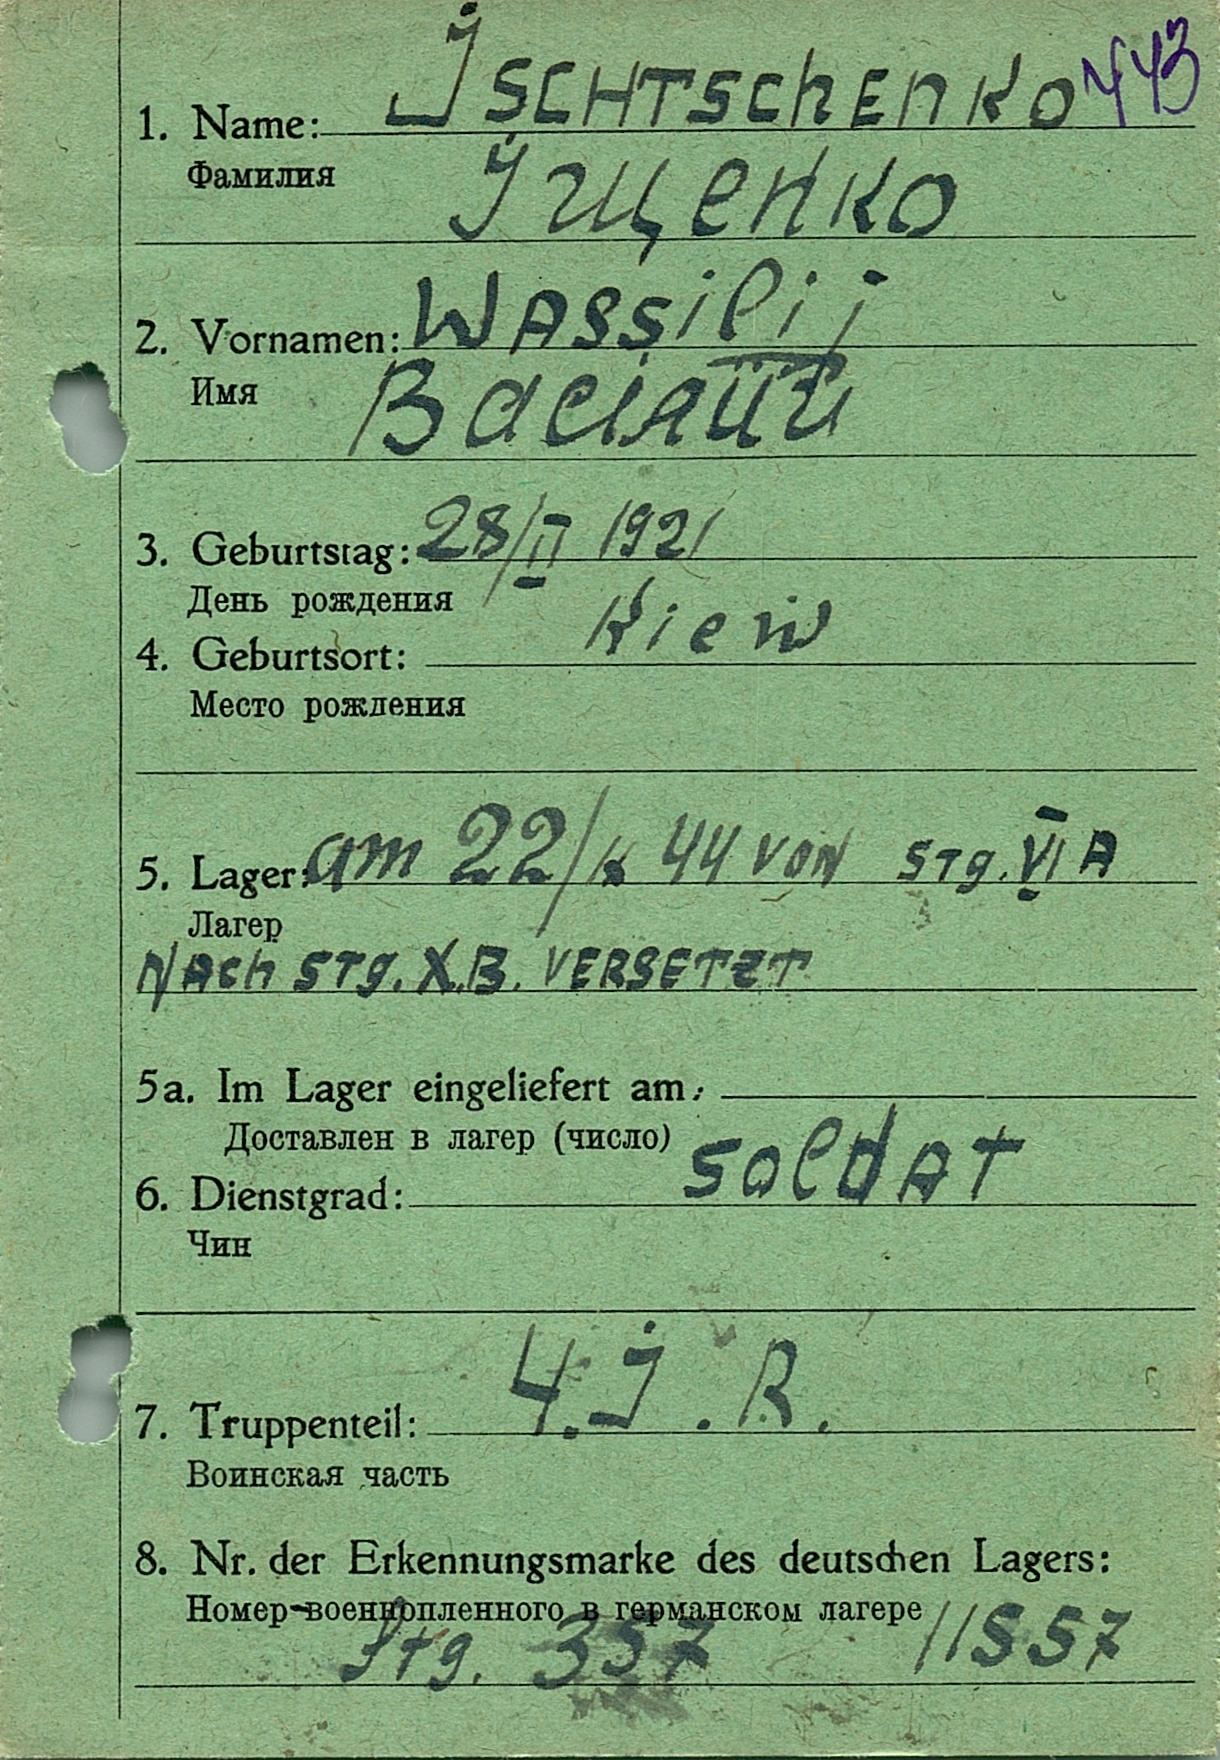 1. Name: Ischtschenko 443
Фамилия Iщенко
2. Vornamen: Wassilij
Имя Васілий
3. Geburtstag: 28/II 1921
День рождения
4. Geburtsort: Kiew
Место рождения
5. Lager: am 22/ 44 von Stg. VI A
Лагер
nach Stg. X.B. versetzt
5a. Im Lager eingeliefert am:
Доставлен в лагер (число)
6. Dienstgrad: Soldat
Чин
7. Truppenteil: 4. J. R.
Воинская часть
8. Nr. der Erkennungsmarke des deutschen Lagers:
Номер военнопленного в германском лагере
Stg. 357 11557